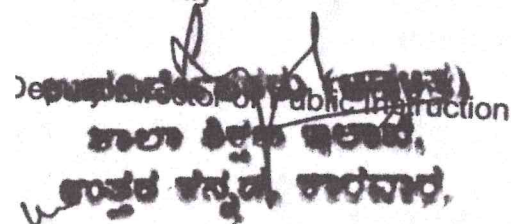 ಉಪನಿರ್ದೇಶಕರು (ಆಡಳಿತ)
Deputy Director of Public Instruction
ಶಾಲಾ ಶಿಕ್ಷಣ ಇಲಾಖೆ,
ಉತ್ತರ ಕನ್ನಡ, ಕಾರವಾರ.